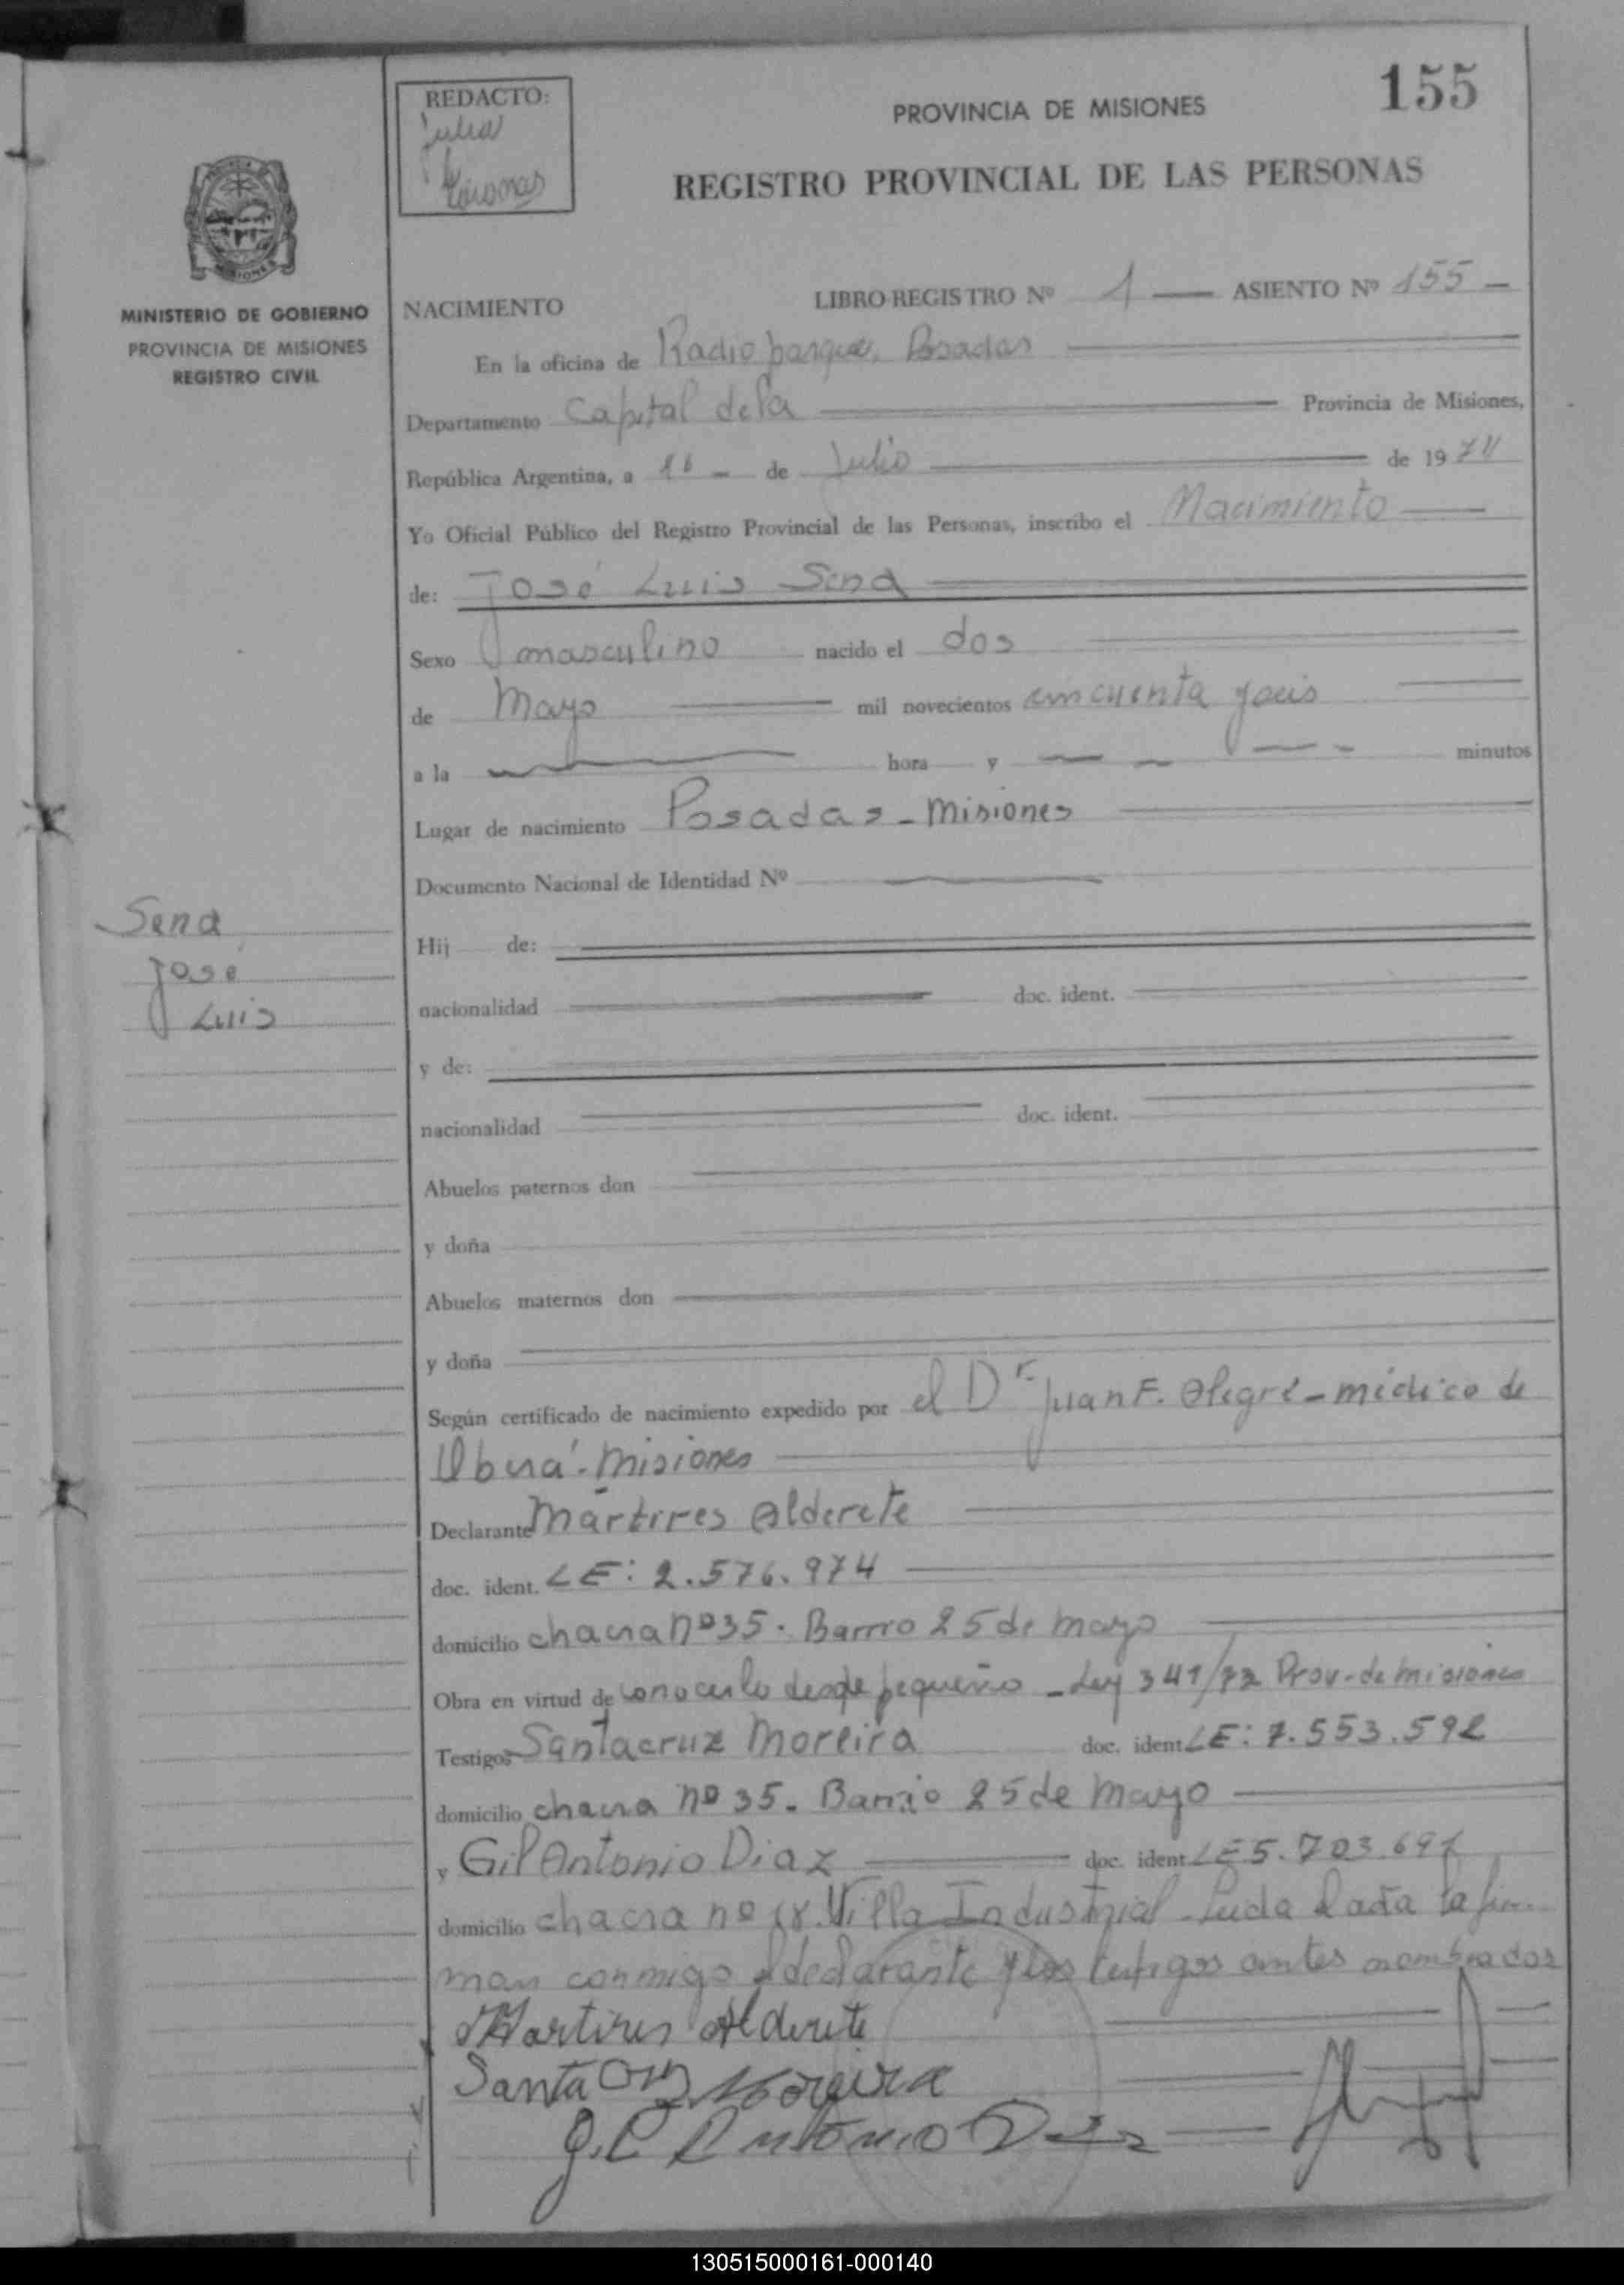 155
REDACTO:
Julia
PROVINCIA DE MISIONES
REGISTRO PROVINCIAL DE LAS PERSONAS
MINISTERIO DE GOBIERNO
PROVINCIA DE MISIONES
REGISTRO CIVIL
NACIMIENTO LIBRO REGISTRO Nº 1 — ASIENTO Nº 155 -
En la oficina de Radio parque, Posadas
Departamento Capital de la Provincia de Misiones,
República Argentina, a 16 - de Julio de 1974
Yo Oficial Público del Registro Provincial de las Personas, inscribo el Nacimiento
de: José Luis Sena
Sexo masculino nacido el dos
de Mayo mil novecientos cincuenta y seis
a la hora y minutos
Lugar de nacimiento Posadas - Misiones
Documento Nacional de Identidad Nº
Sena
José
Luis
Hij de:
nacionalidad doc. ident.
y de:
nacionalidad doc. ident.
Abuelos paternos don
y doña
Abuelos maternos don
y doña
Según certificado de nacimiento expedido por el Dr. Juan F. Alegre - médico de
Oberá - Misiones
Declarante Mártires Alderete
doc. ident. LE: 2.576.974
domicilio chacra nº 35. Barrio 25 de mayo
Obra en virtud de conocerlo desde pequeño - Ley 341/72 Prov. de misiones
Testigos Santacruz Moreira doc. ident LE: 7.553.592
domicilio chacra nº 35. Barrio 25 de Mayo
y Gil Antonio Diaz doc. ident LE 5.703.697
domicilio chacra nº 18. Villa Industrial - Leida el acta la fir-
man conmigo el declarante y los testigos antes nombrados
Martires Alderete
Santa Cruz Moreira
Gil Antonio Diaz
130515000161-000140